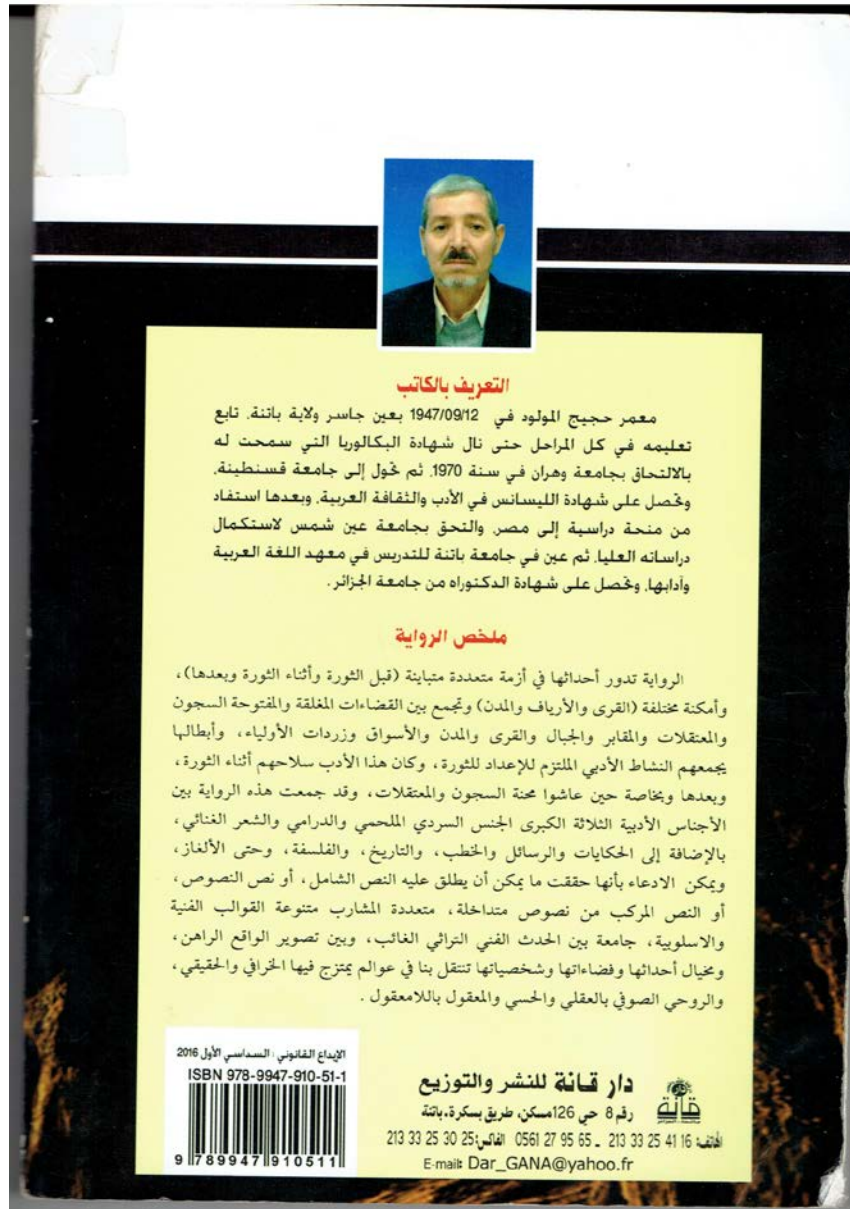 التعريف بالكاتب
معمر حجيج المولود في 1947/09/12 بعين جاسر ولاية باتنة. تابع
تعليمه في كل المراحل حتى نال شهادة البكالوريا التي سمحت له
بالالتحاق بجامعة وهران في سنة 1970. ثم تحول إلى جامعة قسنطينة.
وتحصل على شهادة الليسانس في الأدب والثقافة العربية. وبعدها استفاد
من منحة دراسية إلى مصر. والتحق بجامعة عين شمس لاستكمال
دراساته العليا. ثم عين في جامعة باتنة للتدريس في معهد اللغة العربية
وآدابها. وتحصل على شهادة الدكتوراه من جامعة الجزائر.
ملخص الرواية
الرواية تدور أحداثها في أزمة متعددة متباينة (قبل الثورة وأثناء الثورة وبعدها)،
وأمكنة مختلفة (القرى والأرياف والمدن) وتجمع بين الفضاءات المغلقة والمفتوحة السجون
والمعتقلات والمقابر والجبال والقرى والمدن والأسواق وزردات الأولياء، وأبطالها
يجمعهم النشاط الأدبي الملتزم للإعداد للثورة، وكان هذا الأدب سلاحهم أثناء الثورة،
وبعدها وبخاصة حين عاشوا محنة السجون والمعتقلات، وقد جمعت هذه الرواية بين
الأجناس الأدبية الثلاثة الكبرى الجنس السردي الملحمي والدرامي والشعر الغنائي،
بالإضافة إلى الحكايات والرسائل والخطب، والتاريخ، والفلسفة، وحتى الألغاز،
ويمكن الادعاء بأنها حققت ما يمكن أن يطلق عليه النص الشامل، أو نص النصوص،
أو النص المركب من نصوص متداخلة، متعددة المشارب متنوعة القوالب الفنية
والاسلوبية، جامعة بين الحدث الفني التراثي الغائب، وبين تصوير الواقع الراهن،
ومخيال أحداثها وفضاءاتها وشخصياتها تنتقل بنا في عوالم يمتزج فيها الخرافي والحقيقي،
والروحي الصوفي بالعقلي والحسي والمعقول باللامعقول.
دار قانة للنشر والتوزيع
رقم 8 حي 126مسكن، طريق بسكرة. باتنة
الهاتف: 16 41 25 33 213 ـ 65 95 27 0561 الفاكس:25 30 25 33 213
E-mail: Dar_GANA@yahoo.fr
دار
قانة
الإيداع القانوني : السداسي الأول 2016
ISBN 978-9947-910-51-1
9 789947 910511